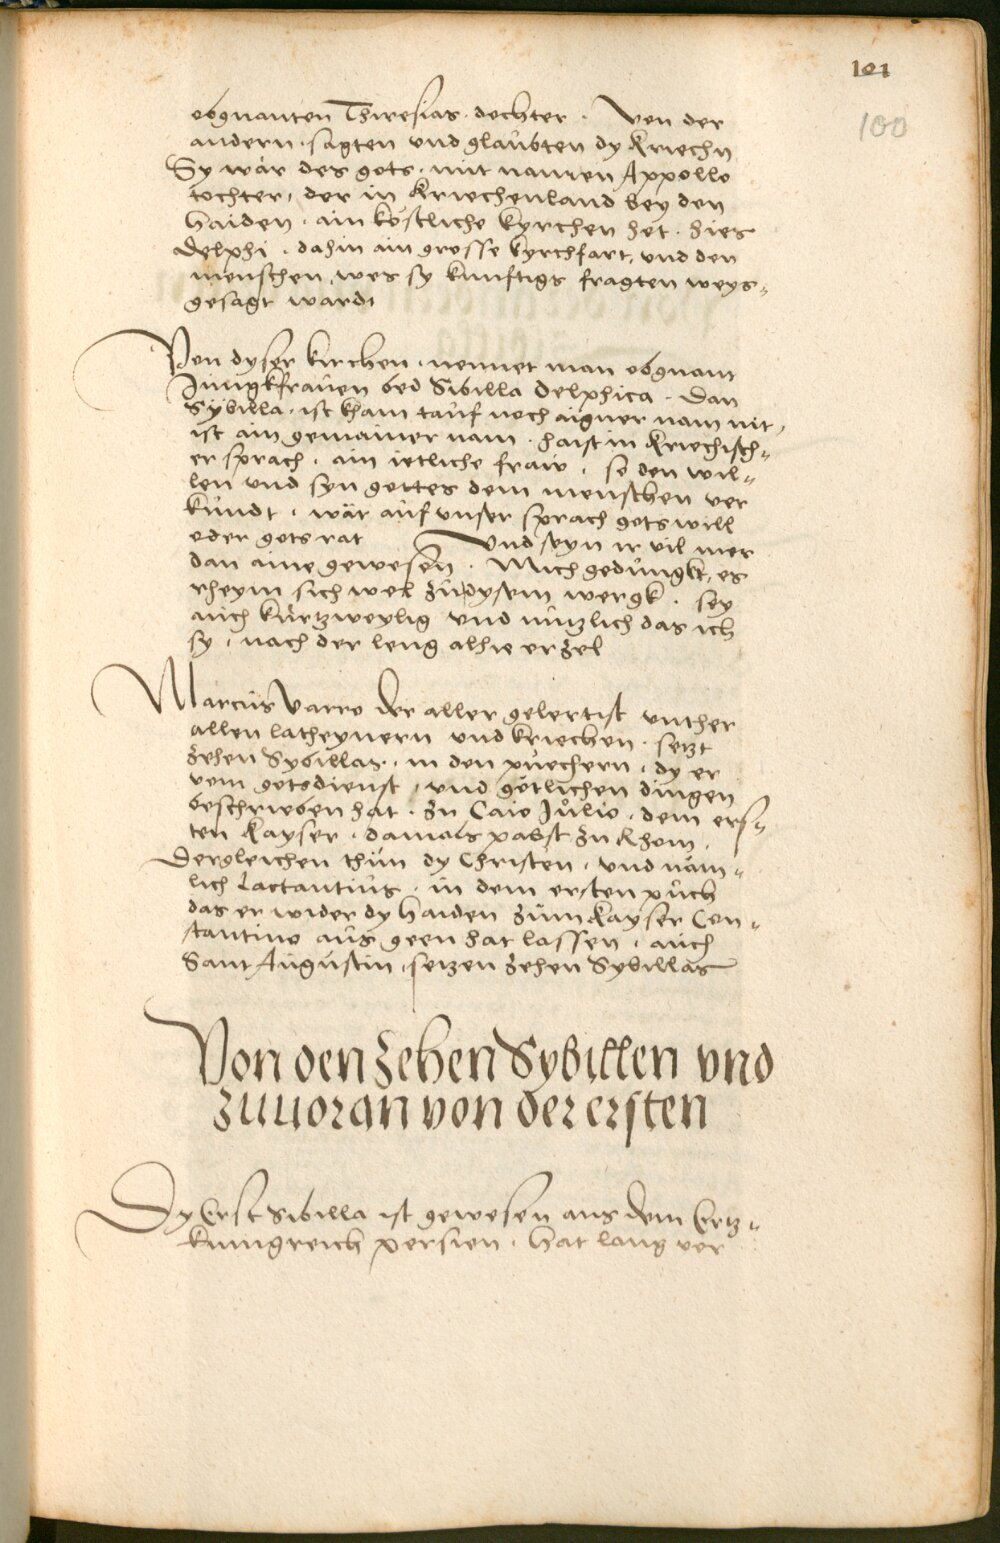 101
100
obgnanten Thiresias dochter. Von der
andern, sagten und glaubten dy Kriechn
Sy wär des gots, mit namen Appollo
tochter, der in Kriechenland bey den
Haiden, ain köstliche kyrchen het, hies
Delphi, dahin ain grosse kyrchfart, und den
menschen wes sy kunftigs fragten weys=
gesagt wardt
Von dyser kirchen, nennet man obgnant
Jungkfrauen bed Sibilla Delphica. Dan
Sybilla, ist kham tauf noch aigner nam nit,
ist ain gemainer nam, haist in Kriechisch=
er sprach, ain ietliche fraw, so den wil=
len und syn gottes dem menschen ver
kundt, wär auf unser sprach gots will
oder gots rat Und seyn ir vil mer
dan aine gewesen. Mich gedungkt, es
rheym sich wol zu dysem wergk, sey
auch kurtzweylig und nutzlich das ich
sy, nach der leng alhie erzel
Marcus Varro der aller gelertist unther
allen latheynern und kriechen, setzt
zehen Sybillas, in den puechern, dy er
vom gotsdienst, und gotlichen dingen
beschrieben hat, zu Caio Julio, dem ers=
ten Kayser, damals pabst zu Rhom,
Dergleichen thun dy Christen, und nam=
lich Lactantius, in dem ersten puch
das er wider dy Haiden zum Kayser Con=
stantino aus geen hat lassen, auch
Sant Augustin, setzen zehen Sybillas
Von den zehen Sybillen vnd
zuuoran von der ersten
Dy Erst Sibilla ist gewesen aus dem Ertz=
kunigreich persien, Hat lang vor